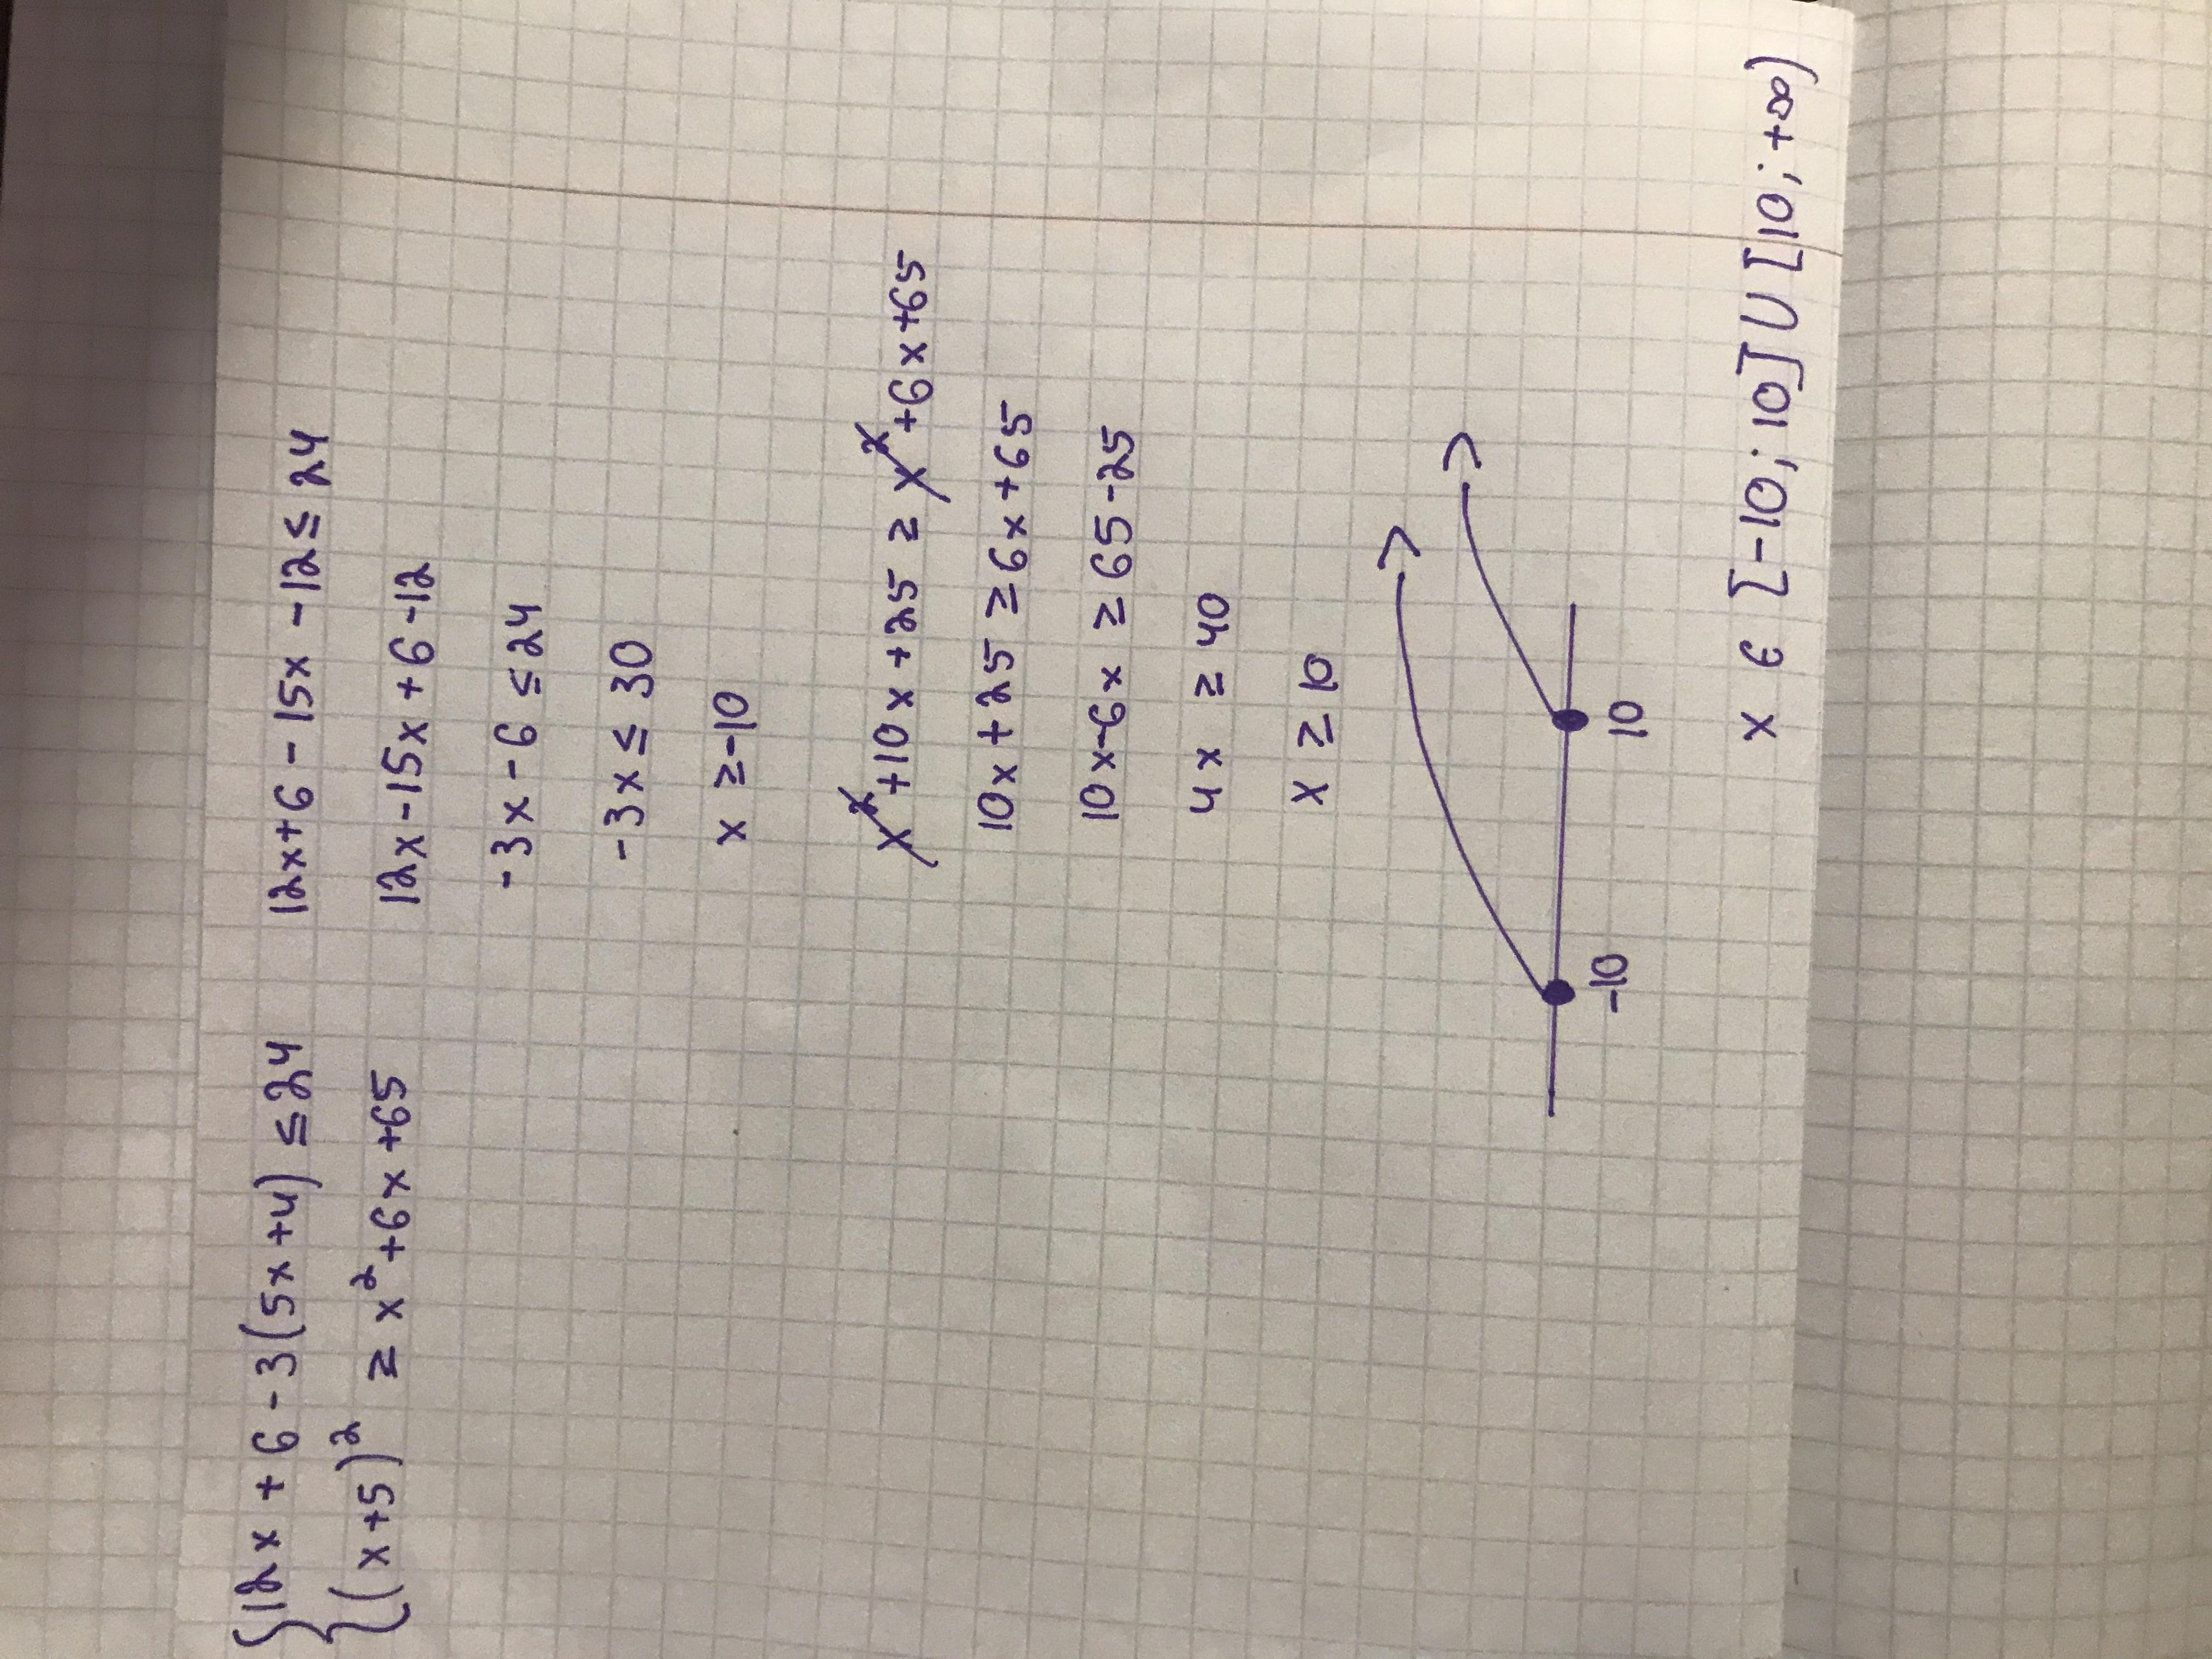 {12x + 6 - 3(5x+4) ≤ 24
{(x+5)² ≥ x²+6x+65
12x+6-15x-12≤24
12x-15x+6-12
-3x-6≤24
-3x≤30
x≥-10
x²+10x+25≥x²+6x+65
10x+25≥6x+65
10x-6x≥65-25
4x≥40
x≥10
-10 10
x є [-10;10]U[10;+∞)